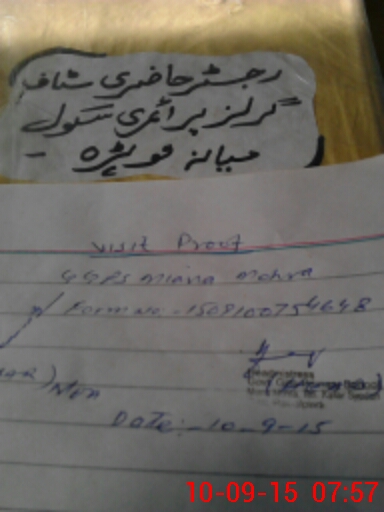 رجسٹر حاضری سٹاف
گرلز پرائمری سکول
میانہ موہڑہ -
Visit Proof
GGPS Miana Mohra
Form No. -1509100754648
Headmistress
Date:- 10-9-15
10-09-15 07:57